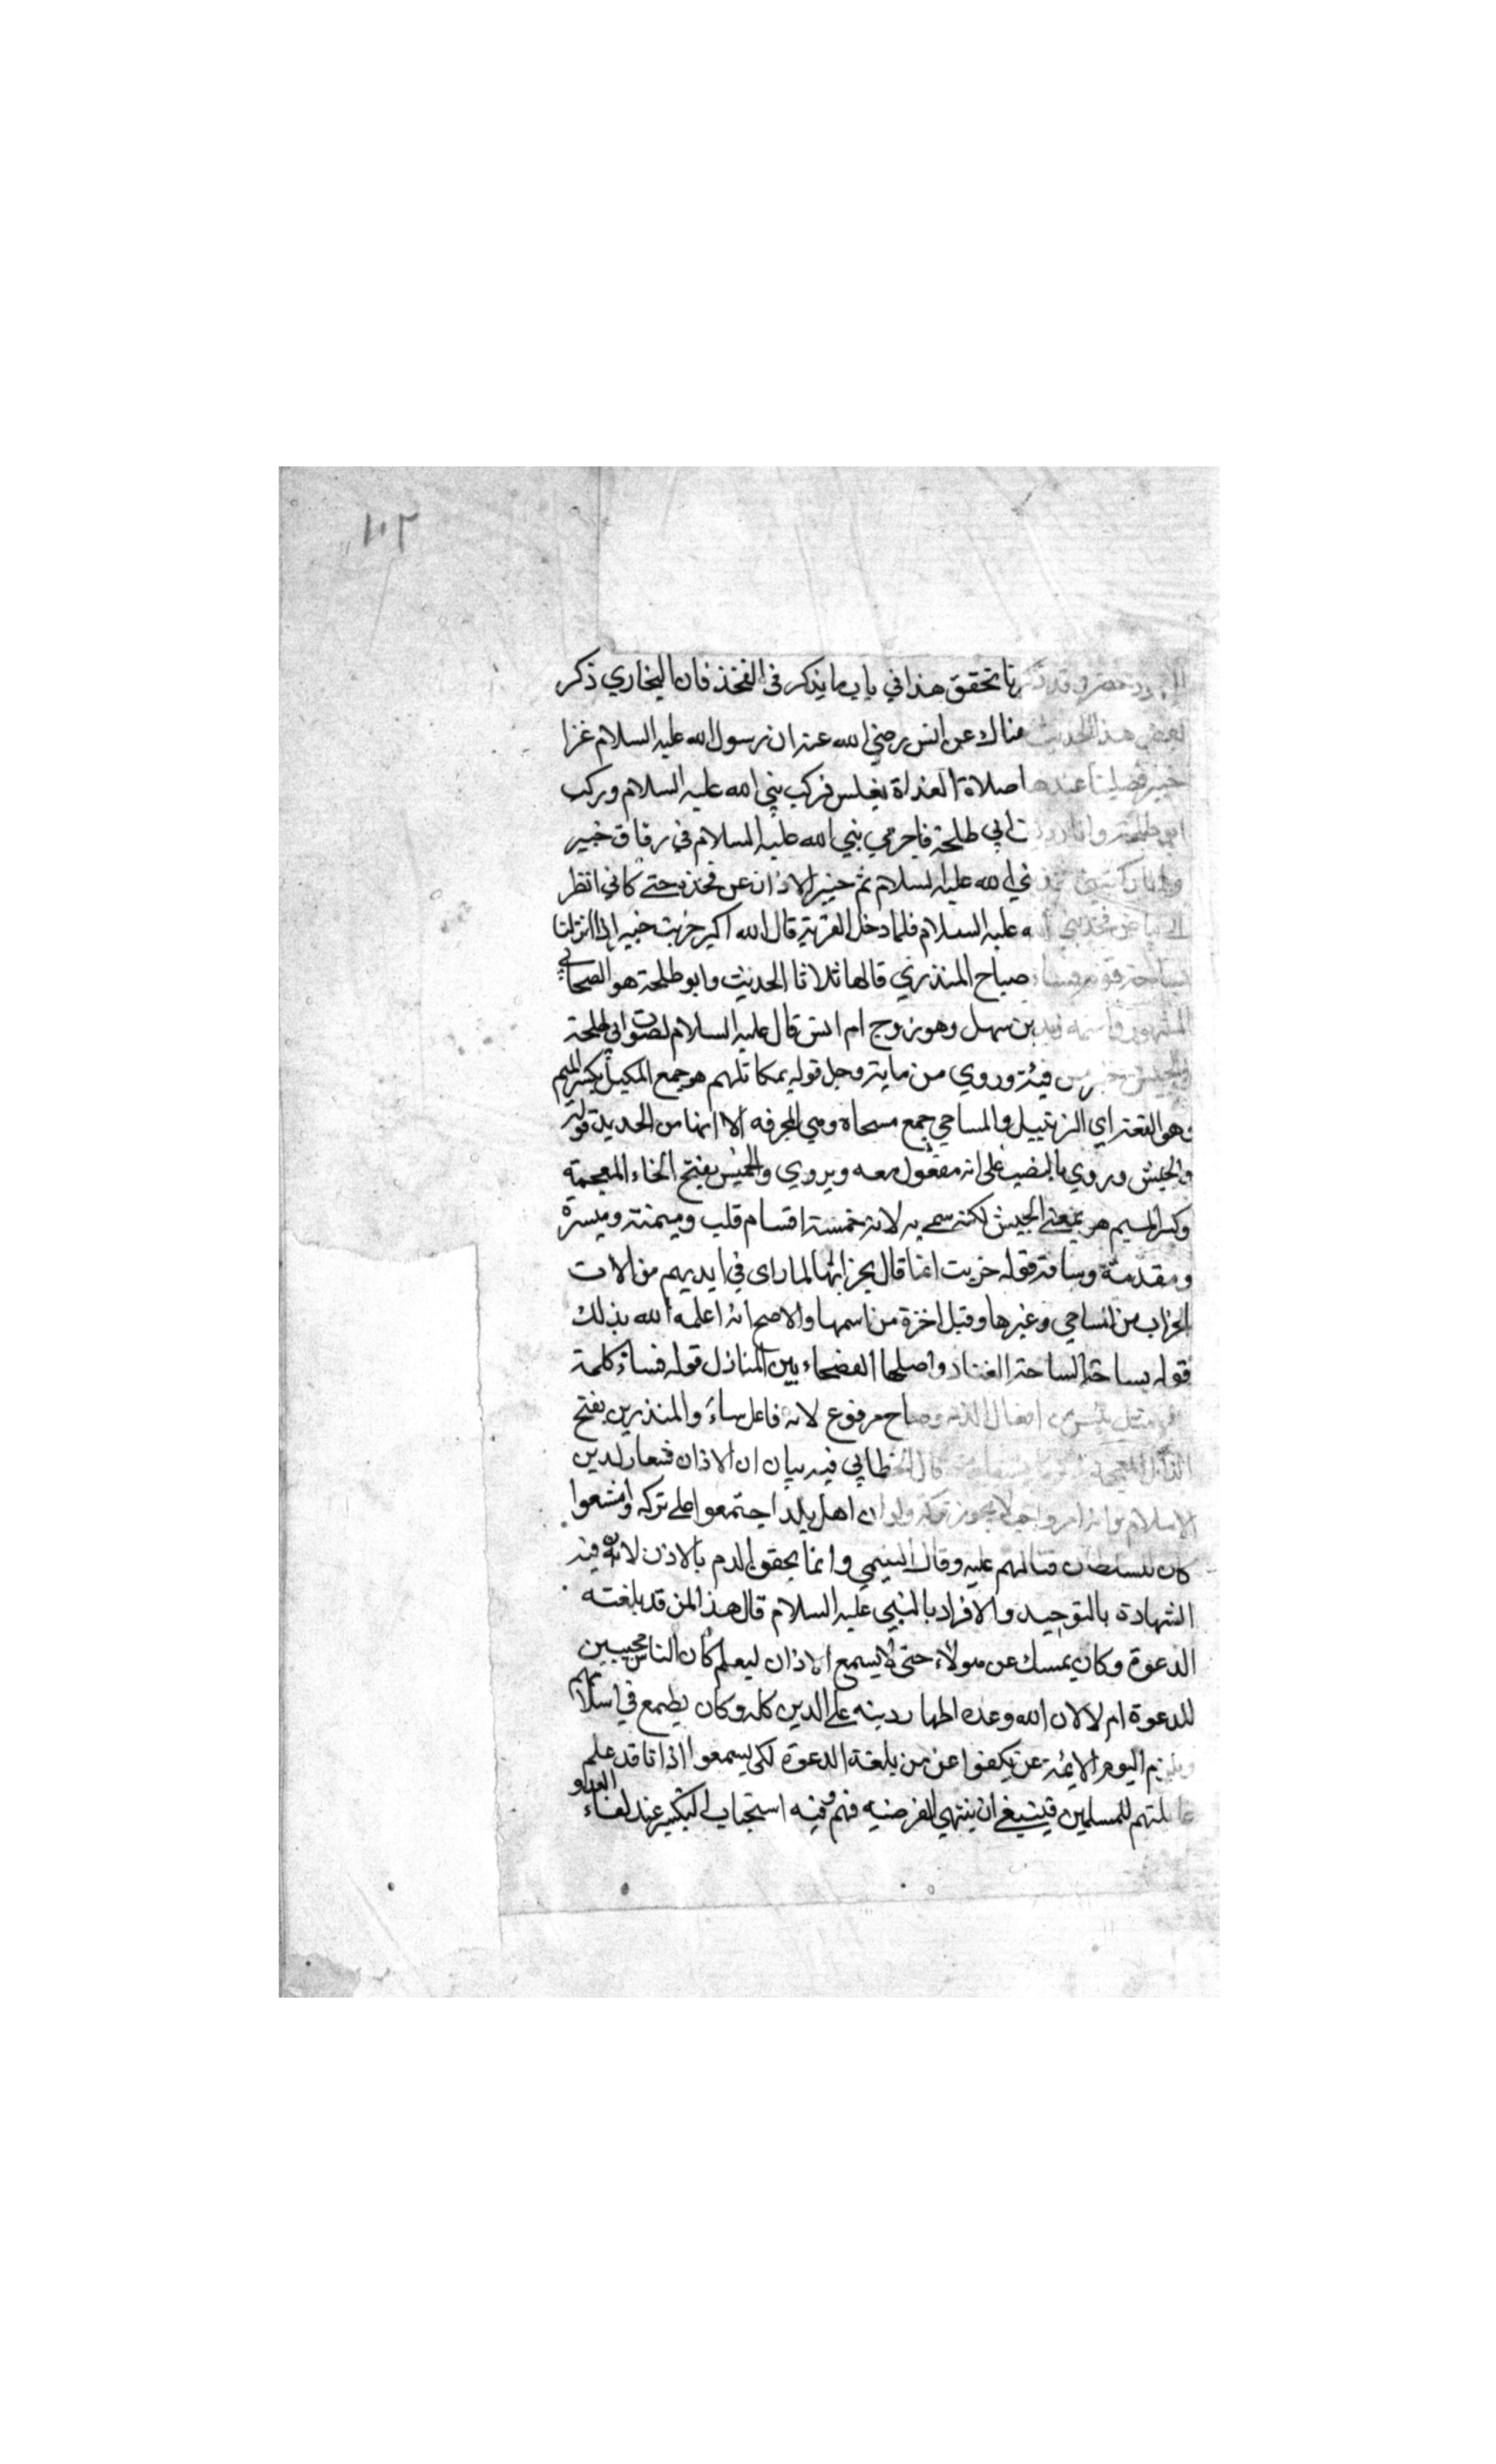 ١٠٢
وقد ذكرنا تحقق هذا في باب ما يذكر في الفخذ فان البخاري ذكر
بعض هذا الحديث هناك عن انس رضي الله عنه ان رسول الله عليه السلام غزا
خيبر فصلينا عندها صلاة الغداة بغلس فركب نبي الله عليه السلام وركب
ابو طلحة وانا رديف ابي طلحة فاجري نبي الله عليه السلام في زقاق خيبر
نبي الله عليه السلام ثم حسر الازار عن فخذه حتى كاني انظر
الى بياض فخذ نبي الله عليه السلام فلما دخل القرية قال الله اكبر خربت خيبر انا اذا نزلنا
بساحة قوم فساء صباح المنذرين قالها ثلاثا الحديث وابو طلحة هو الصحابي
المشهور واسمه زيد بن سهل وهو زوج ام انس قال عليه السلام لصوت ابي طلحة
في الجيش خير من فيئة وروي من ماية رجل قوله بمكاتلهم هو جمع المكيل بكسر الميم
وهو القفة اي الزنبيل والمساحي جمع مسحاة وهي المجرفة الا انها من الحديد قوله
والجيش وروي بالنصب على انه مفعول معه ويروي والخميس بفتح الخاء المعجمة
وكسر الميم هو بمعنى الجيش لكنه سمي به لانه خمسة اقسام قلب وميمنة وميسرة
ومقدمة وساقة قوله خربت انما قال بخرابها لما راى في ايديهم من الات
الخراب من المساحي وغيرها وقيل اخذه من اسمها والاصح انه اعلمه الله بذلك
قوله بساحة الساحة الفناء واصلها الفضاء بين المنازل قوله فساء كلمة
مثل بئس من افعال الذم وصباح مرفوع لانه فاعل ساء والمنذرين بفتح
الذال المعجمة قال الخطابي فيه بيان ان الاذان شعار لدين
الاسلام وانه امر واجب لا يجوز تركه ولو ان اهل بلد اجتمعوا على تركه وامتنعوا
كان للسلطان قتالهم عليه وقال التيمي وانما يحقن الدم بالاذن لان فيه
الشهادة بالتوحيد والاقرار بالنبي عليه السلام قال هذا لمن قد بلغته
الدعوة وكان يمسك عن هولاء حتى يسمع الاذان ليعلم كان الناس مجيبين
للدعوة ام لا لان الله وعده اظهار دينه على الدين كله وكان يطمع في اسلامهم
ويلزم اليوم الايمة عن يكفوا عن من بلغته الدعوة لكي يسمعوا اذانا قد علم
غايلتهم للمسلمين فينبغي ان ينتهي الفرصة فيهم وفيه استحباب التكبير عند لقاء العدو